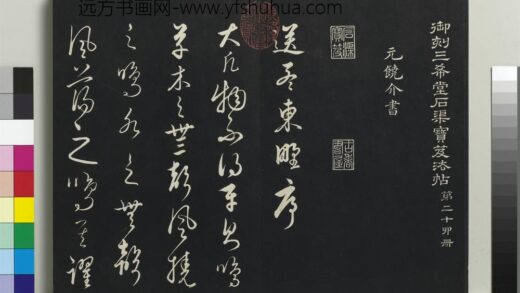 远方书画网-www.yfshuhua.com
御刻三希堂石渠寶笈法帖 第二十四冊
元饒介書
石渠寶笈
送孟東野序
大凡物不得平則鳴
草木之無聲風撓
之鳴水之無聲
風蕩之鳴其躍